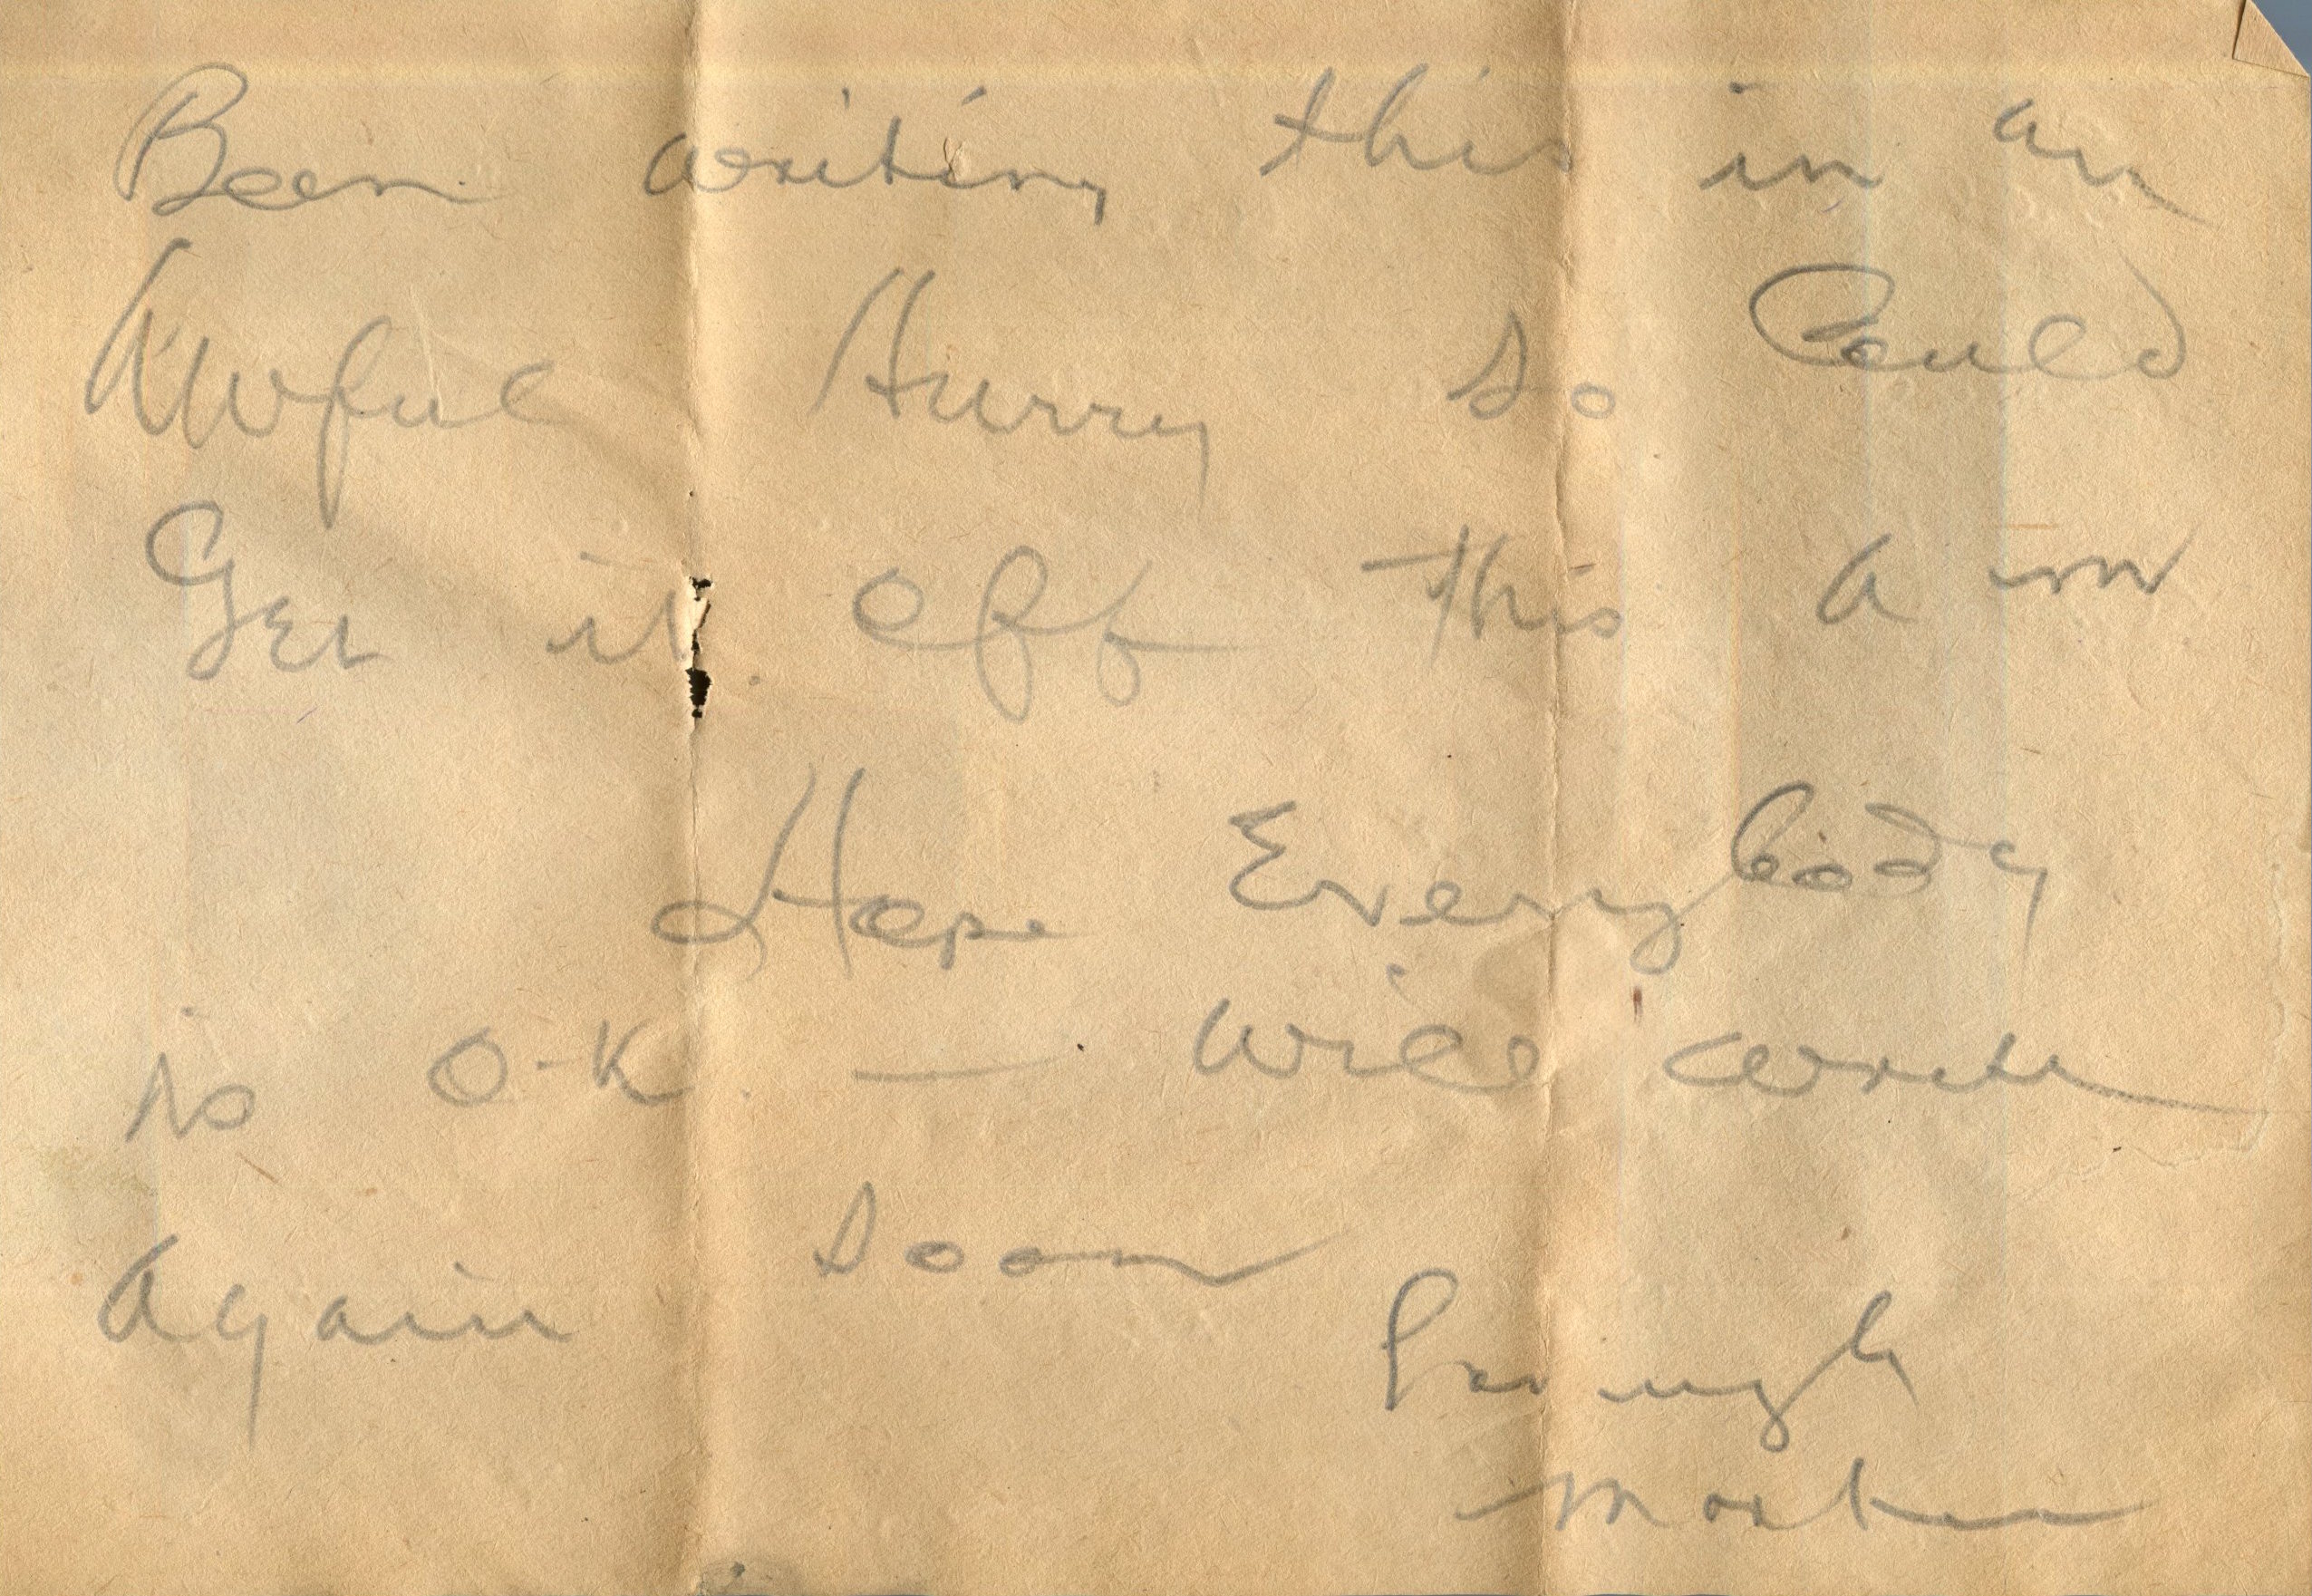 Been writing this in an
Awful Hurry so Could
Get it off This A m
Hope Everybody
is O-K. — Will write
Again Soon